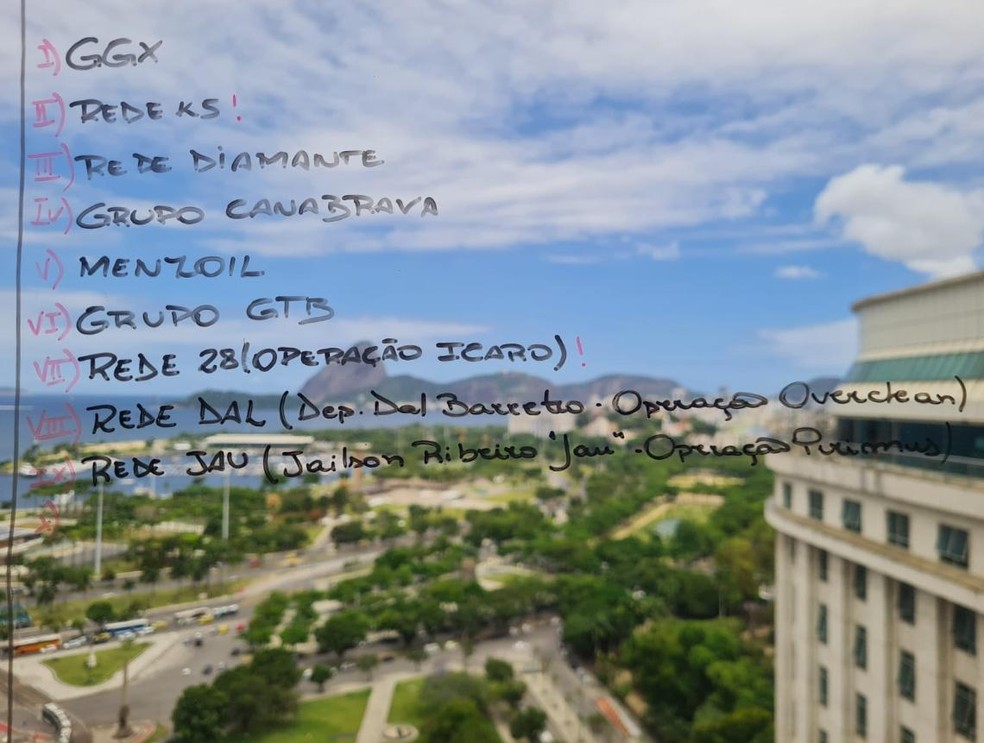 I) GGX
II) REDE K5!
III) REDE DIAMANTE
IV) GRUPO CANABRAVA
V) MENZOIL
VI) GRUPO GTB
VII) REDE 28 (OPERAÇÃO ICARO)!
VIII) REDE DAL (Dep. Dal Barreto - Operação Overclean)
IX) REDE JAU (Jailson Ribeiro "Jau" - Operação Primus)
X)